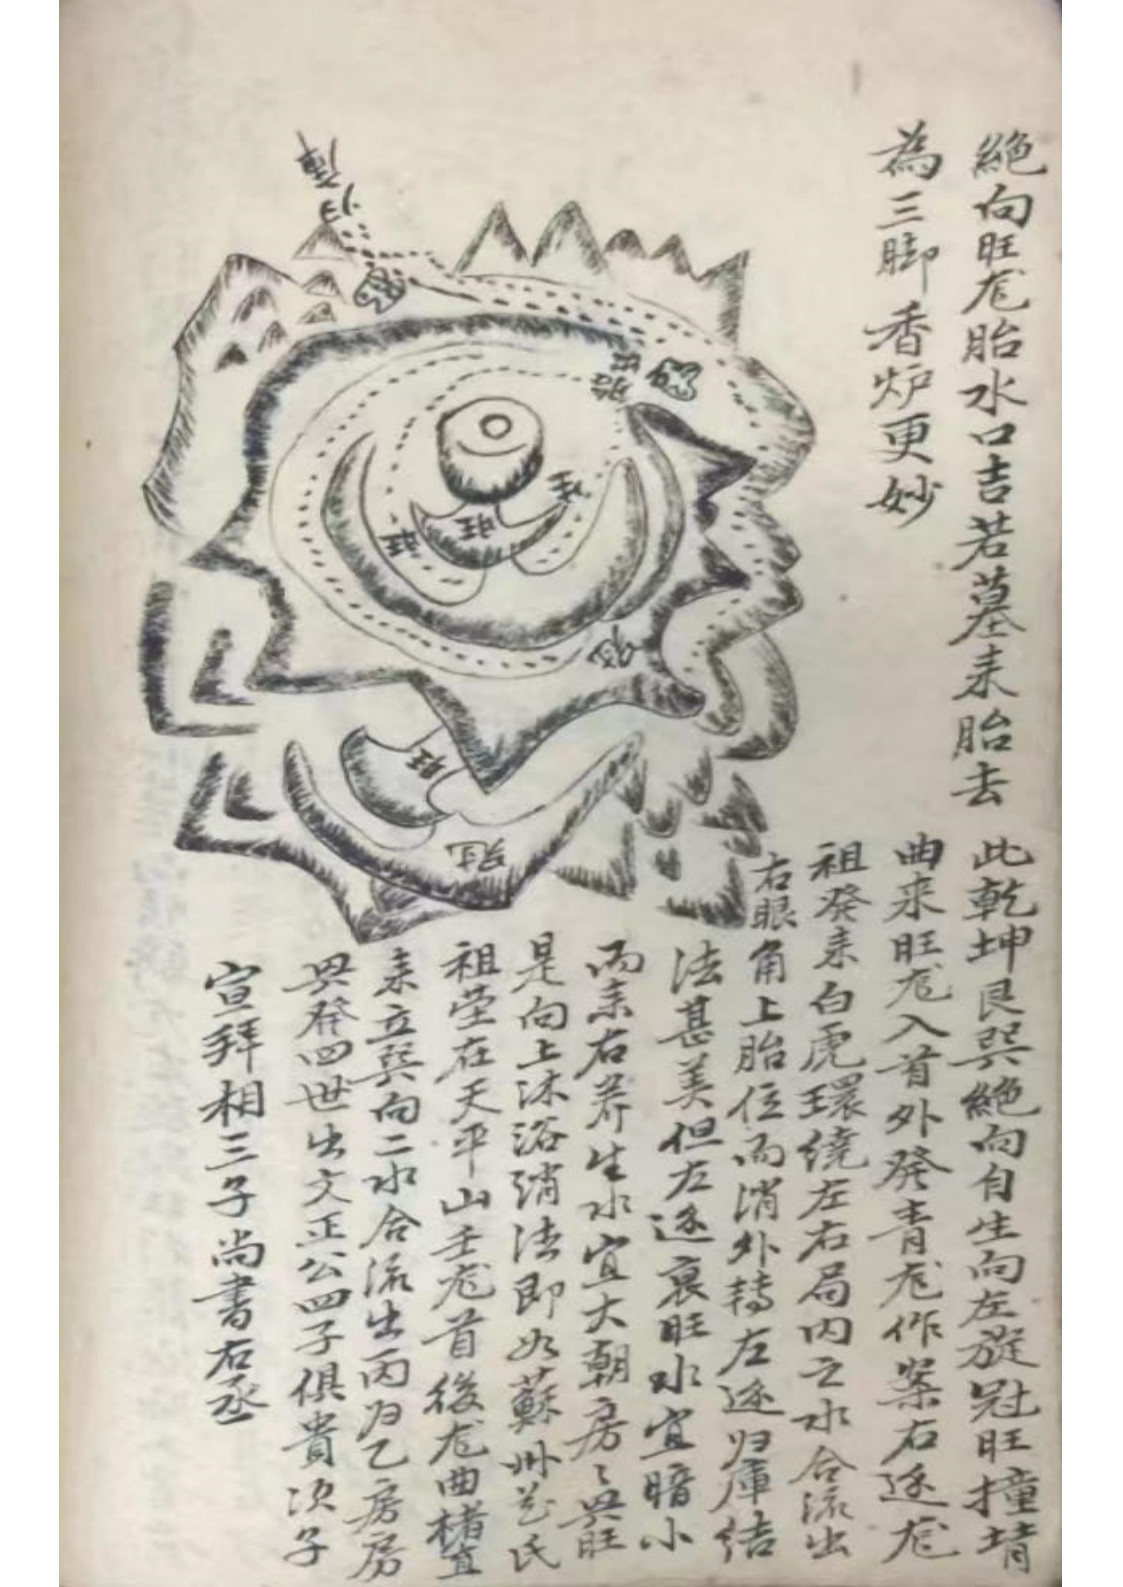 絕向旺龙胎水口吉若墓来胎去
為三脚香炉更妙
此乾坤艮巽絕向自生向左旋冠旺撞堵
曲来旺龙入首外發青龙作案右逆龙
祖發来白虎環繞左右局内之水合流出
右眼角上胎位而消外轉左逆归庫結
法甚美但左逆裏旺水宜暗小
而来右养生水宜大朝房〻興旺
是向上沐浴消法即如蘇州范氏
祖茔在天平山壬龙首後龙曲楮直
来立巽向二水合流出丙归乙房房
興發四世出文正公四子俱貴次子
宣拜相三子尚書右丞
归庫
胎
旺
旺
旺
旺
冠